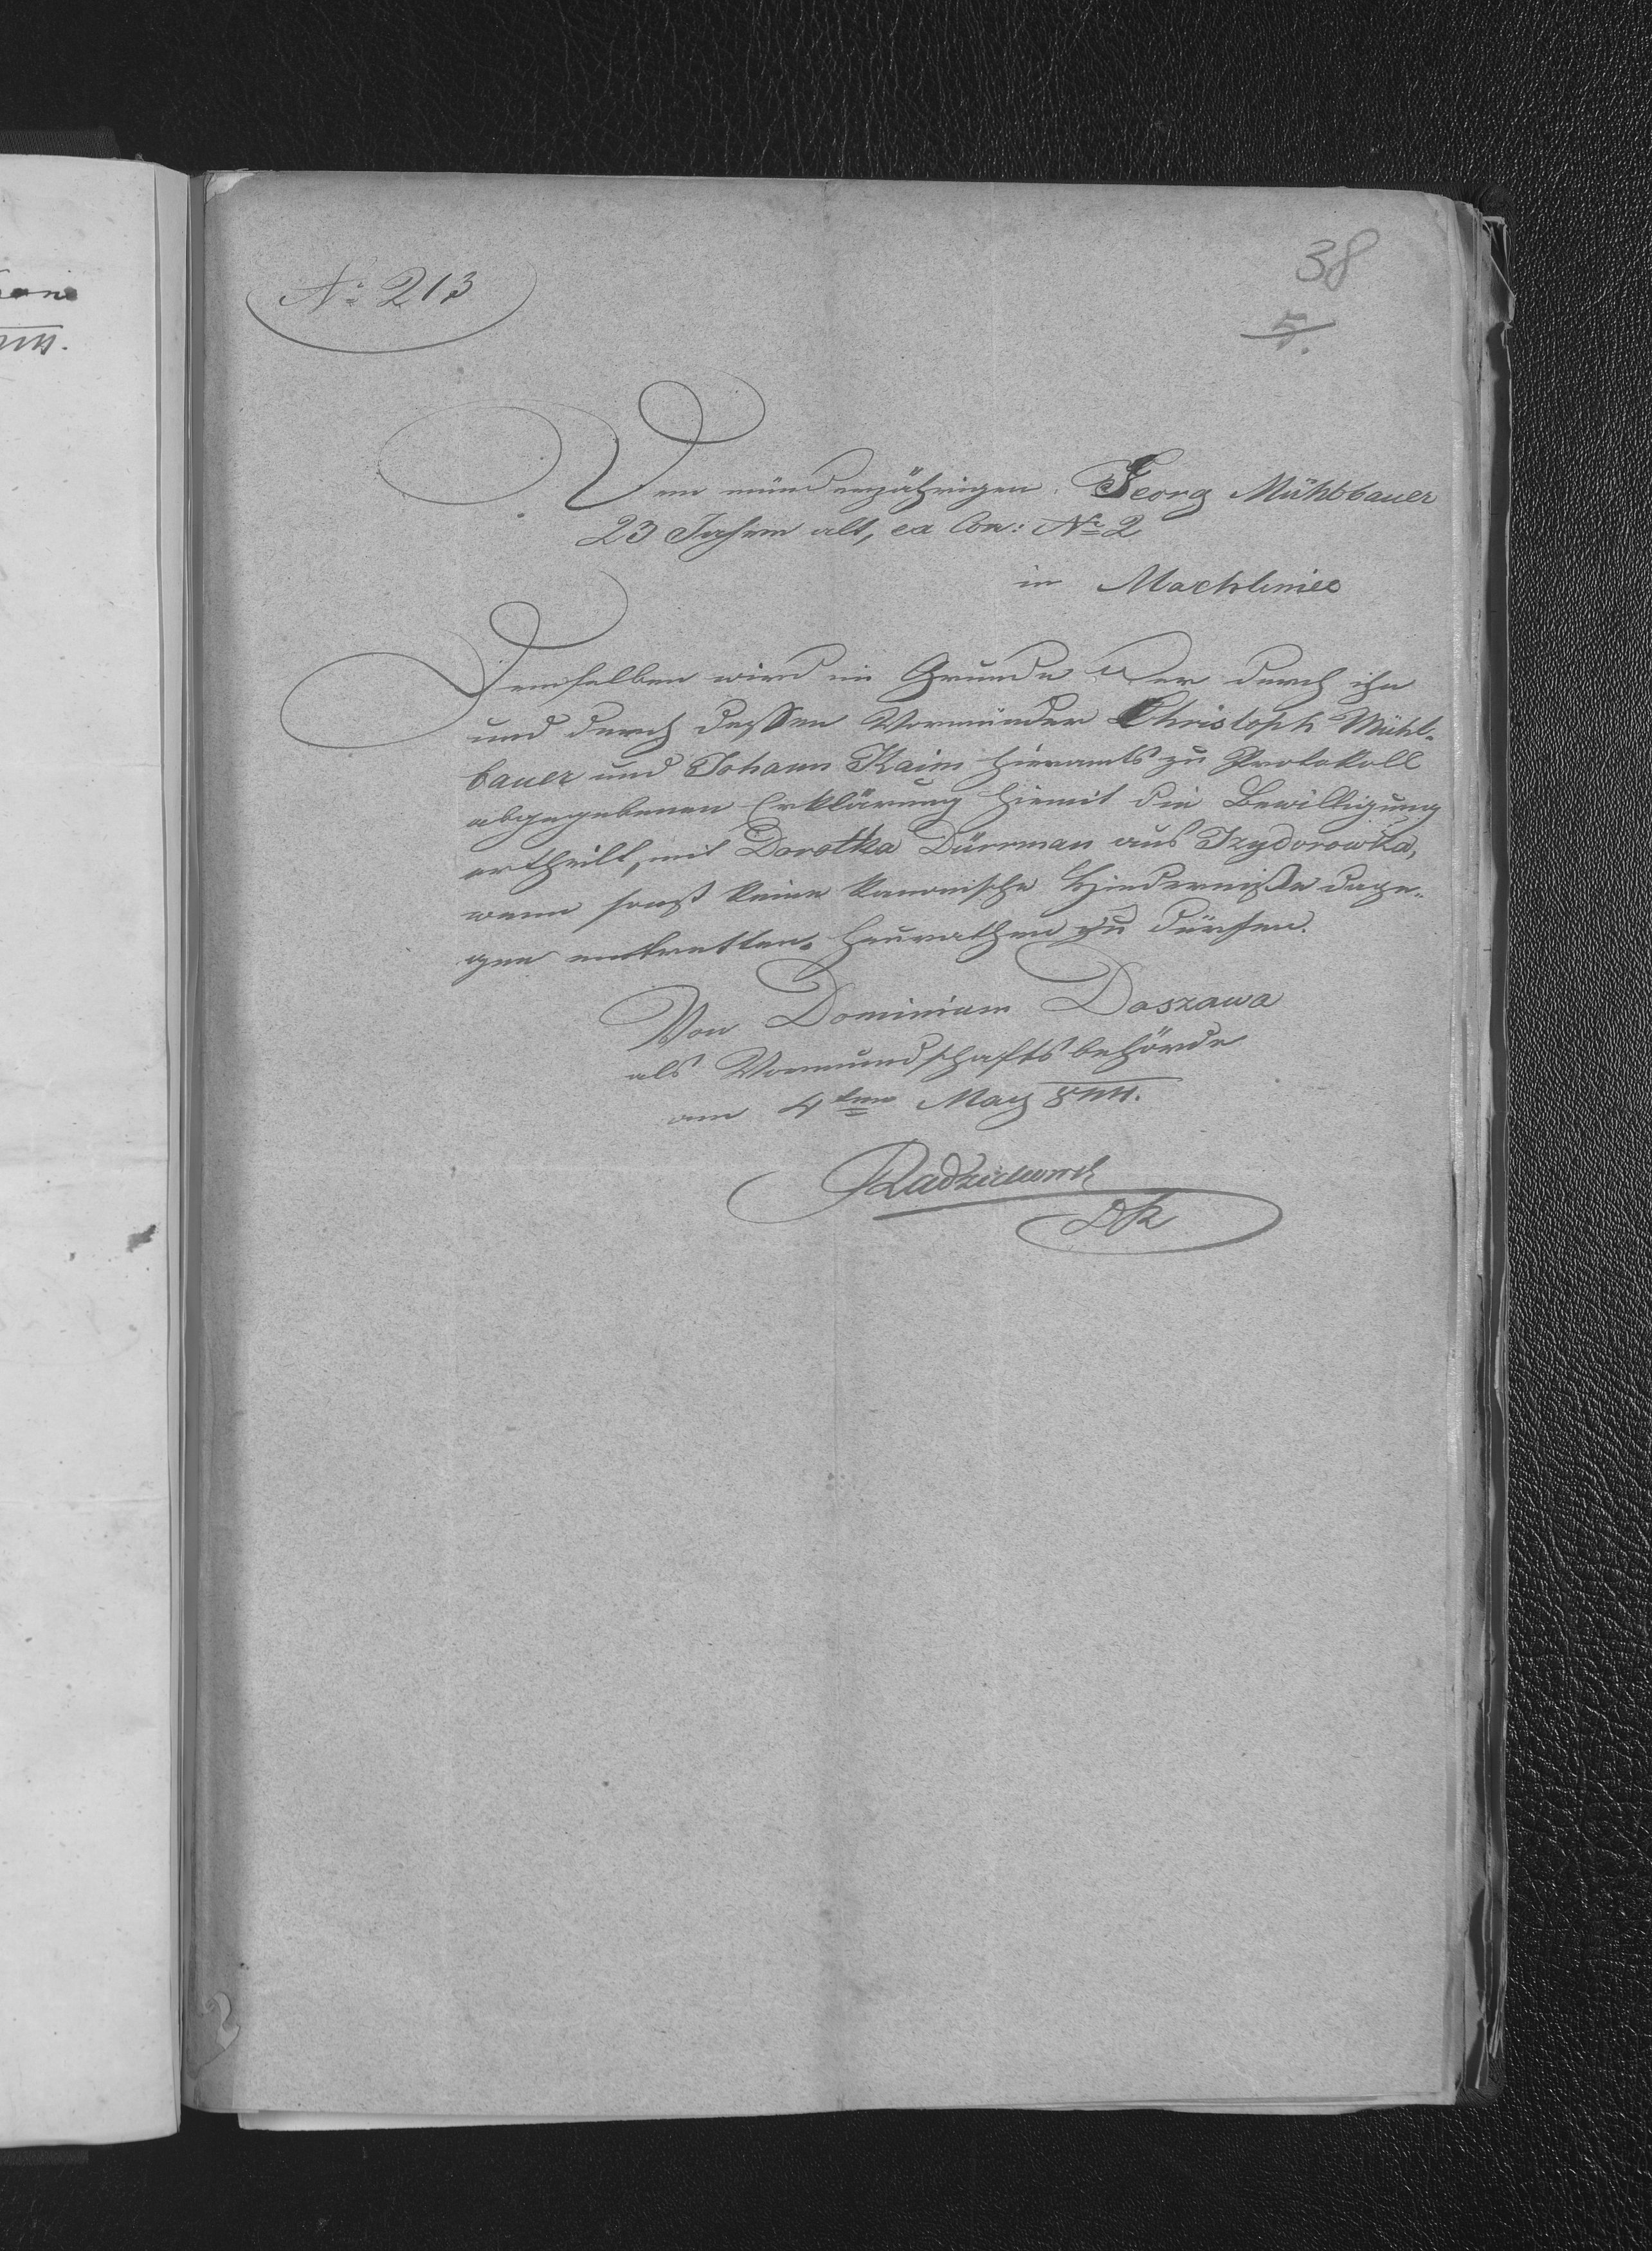 38
No 213
5.
Dem minderjährigen Georg Mühlbauer
23 Jahre alt, ex Con: No 2
in Machliniec
Demselben wird im Grunde der durch ihn
und durch dessen Vormünder Christoph Mühl-
bauer und Johann Kaim hieramts zu Protokoll
abgegebenen Erklärung hiemit die Bewilligung
ertheilt, mit Dorotka Dürrman aus Izydorowka,
wenn sonst keine kanonische Hindernisse dage-
gen entretten, heurathen zu dürfen.
Von Dominium Daszawa
als Vormundschaftsbehörde
am 4ten May